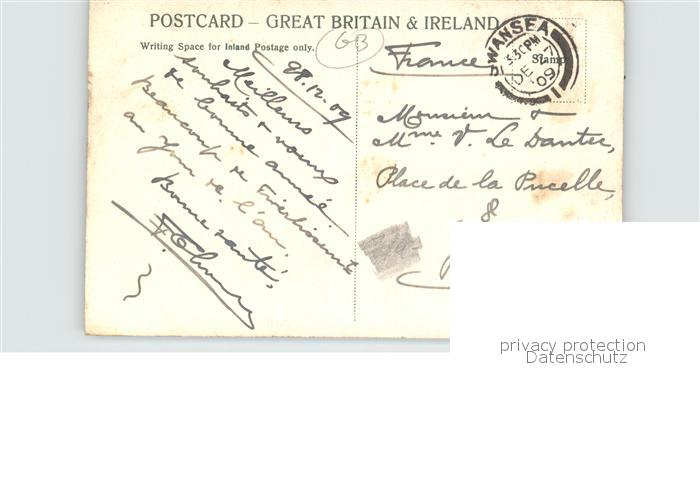 POSTCARD – GREAT BRITAIN & IRELAND
Writing Space for Inland Postage only.
GB
SWANSEA
3.30PM
DE 27
09
1
Stamp
28.12.09
Meilleurs
souhaits & voeux
de bonne année.
Beaucoup de
au Jour de l'an.
Bonne santé,
France
Monsieur &
Mme V. Le Dantec,
Place de la Pucelle,
8
privacy protection
Datenschutz